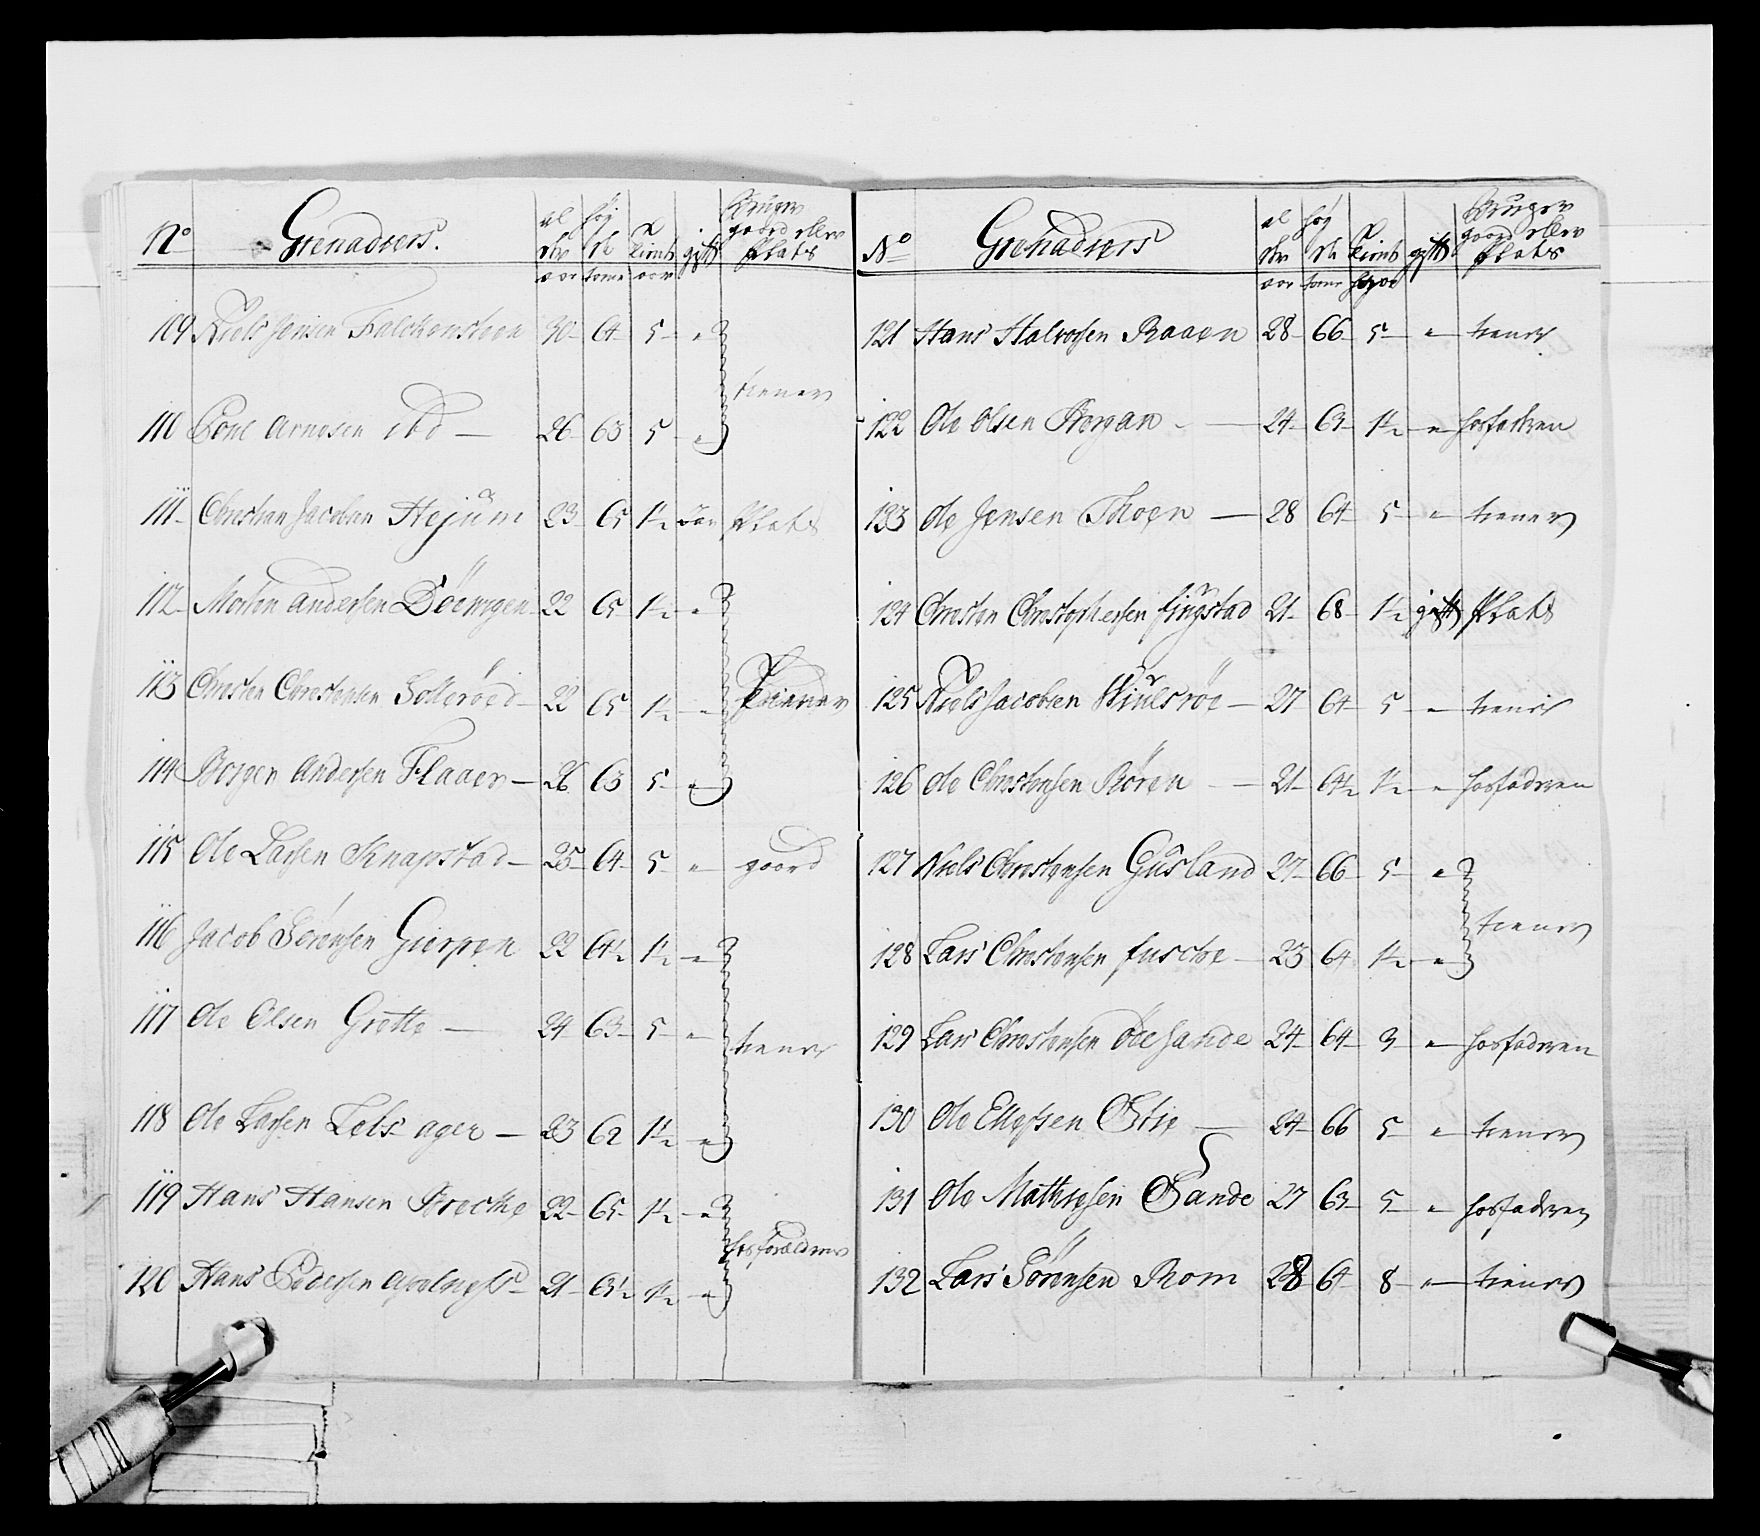 No Grenadeers. al der aar høy de tome tients aar gift Bruger gaard eller Plats
109 Niels Jensen Falckensteen 30 64 5 "
tiener
110 Poul Arnesen ibd — 26 63 5 "
111 Christian Jacobsen Hejum 23 65 1½ Plats
112 Morten Andersen 22 65 1½ "
113 Christen Christensen Sollerød 22 65 1½ " tiener
114 Børgen Andersen Flaaer — 26 63 5 "
115 Ole Larsen Knapstad — 25 64 5 " gaard
116 Jacob Sørensen Gierpen 22 64½ 1½ "
117 Ole Olsen Grette — 24 63 5 "
tiener
118 Ole Larsen Lets ager — 23 62 1½ "
119 Hans Hansen Brecke 22 65 1½ "
hos forældrene
120 Hans Pedersen 21 63½ 1½ "
No Grenadeers al der aar høy de tome tients gift Bruger gaard eller Plats
121 Hans Halvorsen Braaen 28 66 5 " tiener
122 Ole Olsen Bergan — 24 63 1½ " hosfadren
123 Ole Jensen Moen — 28 64 5 " tiener
124 Christen Christophersen Liugstad 21 68 1½ gift Plats
125 Niels Jacobsen Hiulsrøe — 27 64 5 " tiener
126 Ole Christensen Røren — 21 64½ 1½ " hosfadren
127 Niels Christensen Gusland 27 66 5 "
tiener
128 Lars Christensen fuscke — 23 64 1½ "
129 Lars Christensen Øde Sande 24 64 3 " hosfadren
130 Ole Ellefsen Østie — 24 66 5 " tiener
131 Ole Mathisesen Sande 27 63 5 " hosfadren
132 Lars Sørensen Rom 28 64 8 " tiener